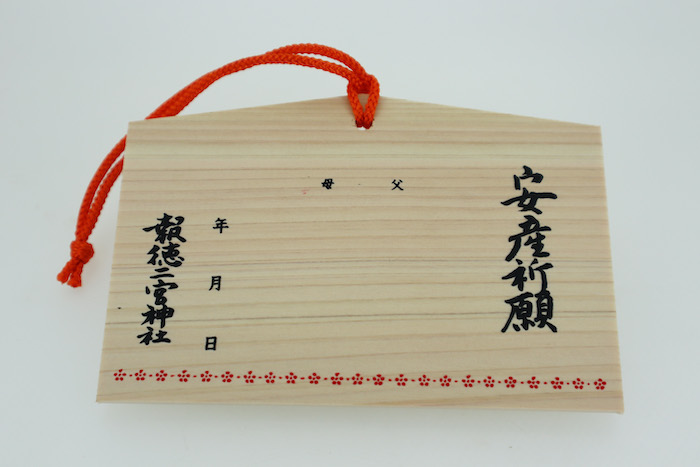 安産祈願
父
母
年
月
日
報徳二宮神社